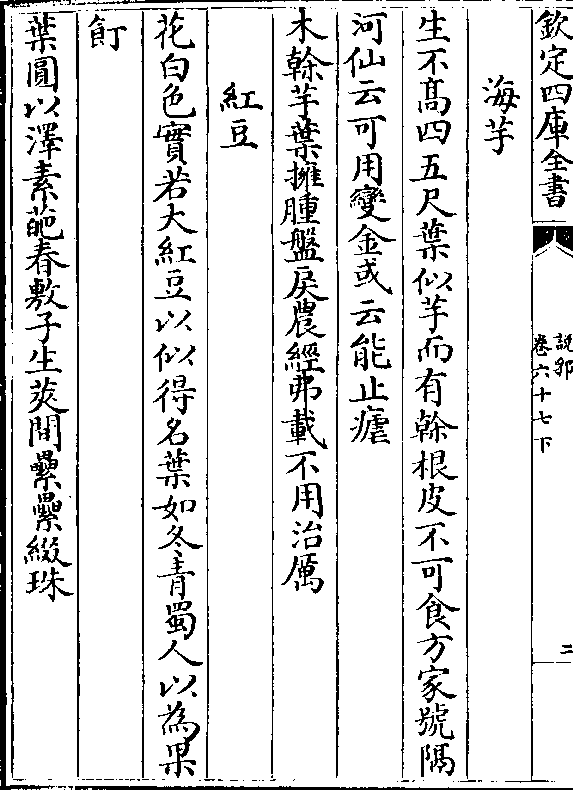 欽定四庫全書
說郛
卷六十七下
二
海芋
生不髙四五尺葉似芋而有榦根皮不可食方家號隔
河仙云可用變金或云能止瘧
木榦芋葉擁腫盤戾農經弗載不用治厲
紅豆
花白色實若大紅豆以似得名葉如冬青蜀人以為果
飣
葉圓以澤素葩春敷子生莢間纍纍綴珠